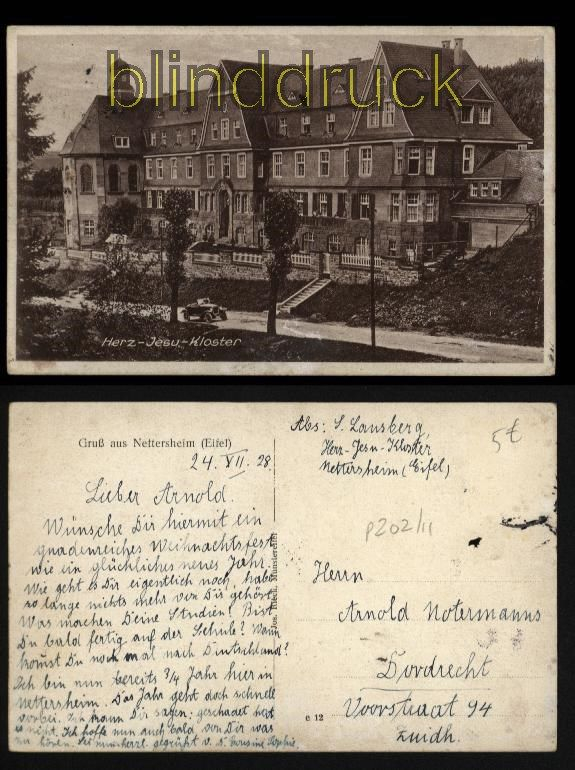 blinddruck
Herz-Jesu-Kloster
Gruß aus Nettersheim (Eifel)
24. XII. 28.
Lieber Arnold.
Wünsche Dir hiermit ein
gnadenreiches Weihnachtsfest
wie ein glückliches neues Jahr.
Wie geht es Dir eigentlich noch, habe
so lange nichts mehr von Dir gehört.
Was machen Deine Studien? Bist
Du bald fertig auf der Schule? Wann
kommst Du noch mal nach Deutschland?
Ich bin nun bereits 3/4 Jahr hier in
Nettersheim. Das Jahr geht doch schnell
vorbei. Ich kann Dir sagen: geschadet hat
es nicht. Ich hoffe nun auch bald von Dir was
zu hören. Sei nun herzl. gegrüßt v. D. Cousine Sophie.
Abs: S. Lansberg,
Herz-Jesu-Kloster
Nettersheim (Eifel)
5€
p202/11
Herrn
Arnold Notermanns
Dordrecht
Voorstraat 94
Zuidh.
e 12